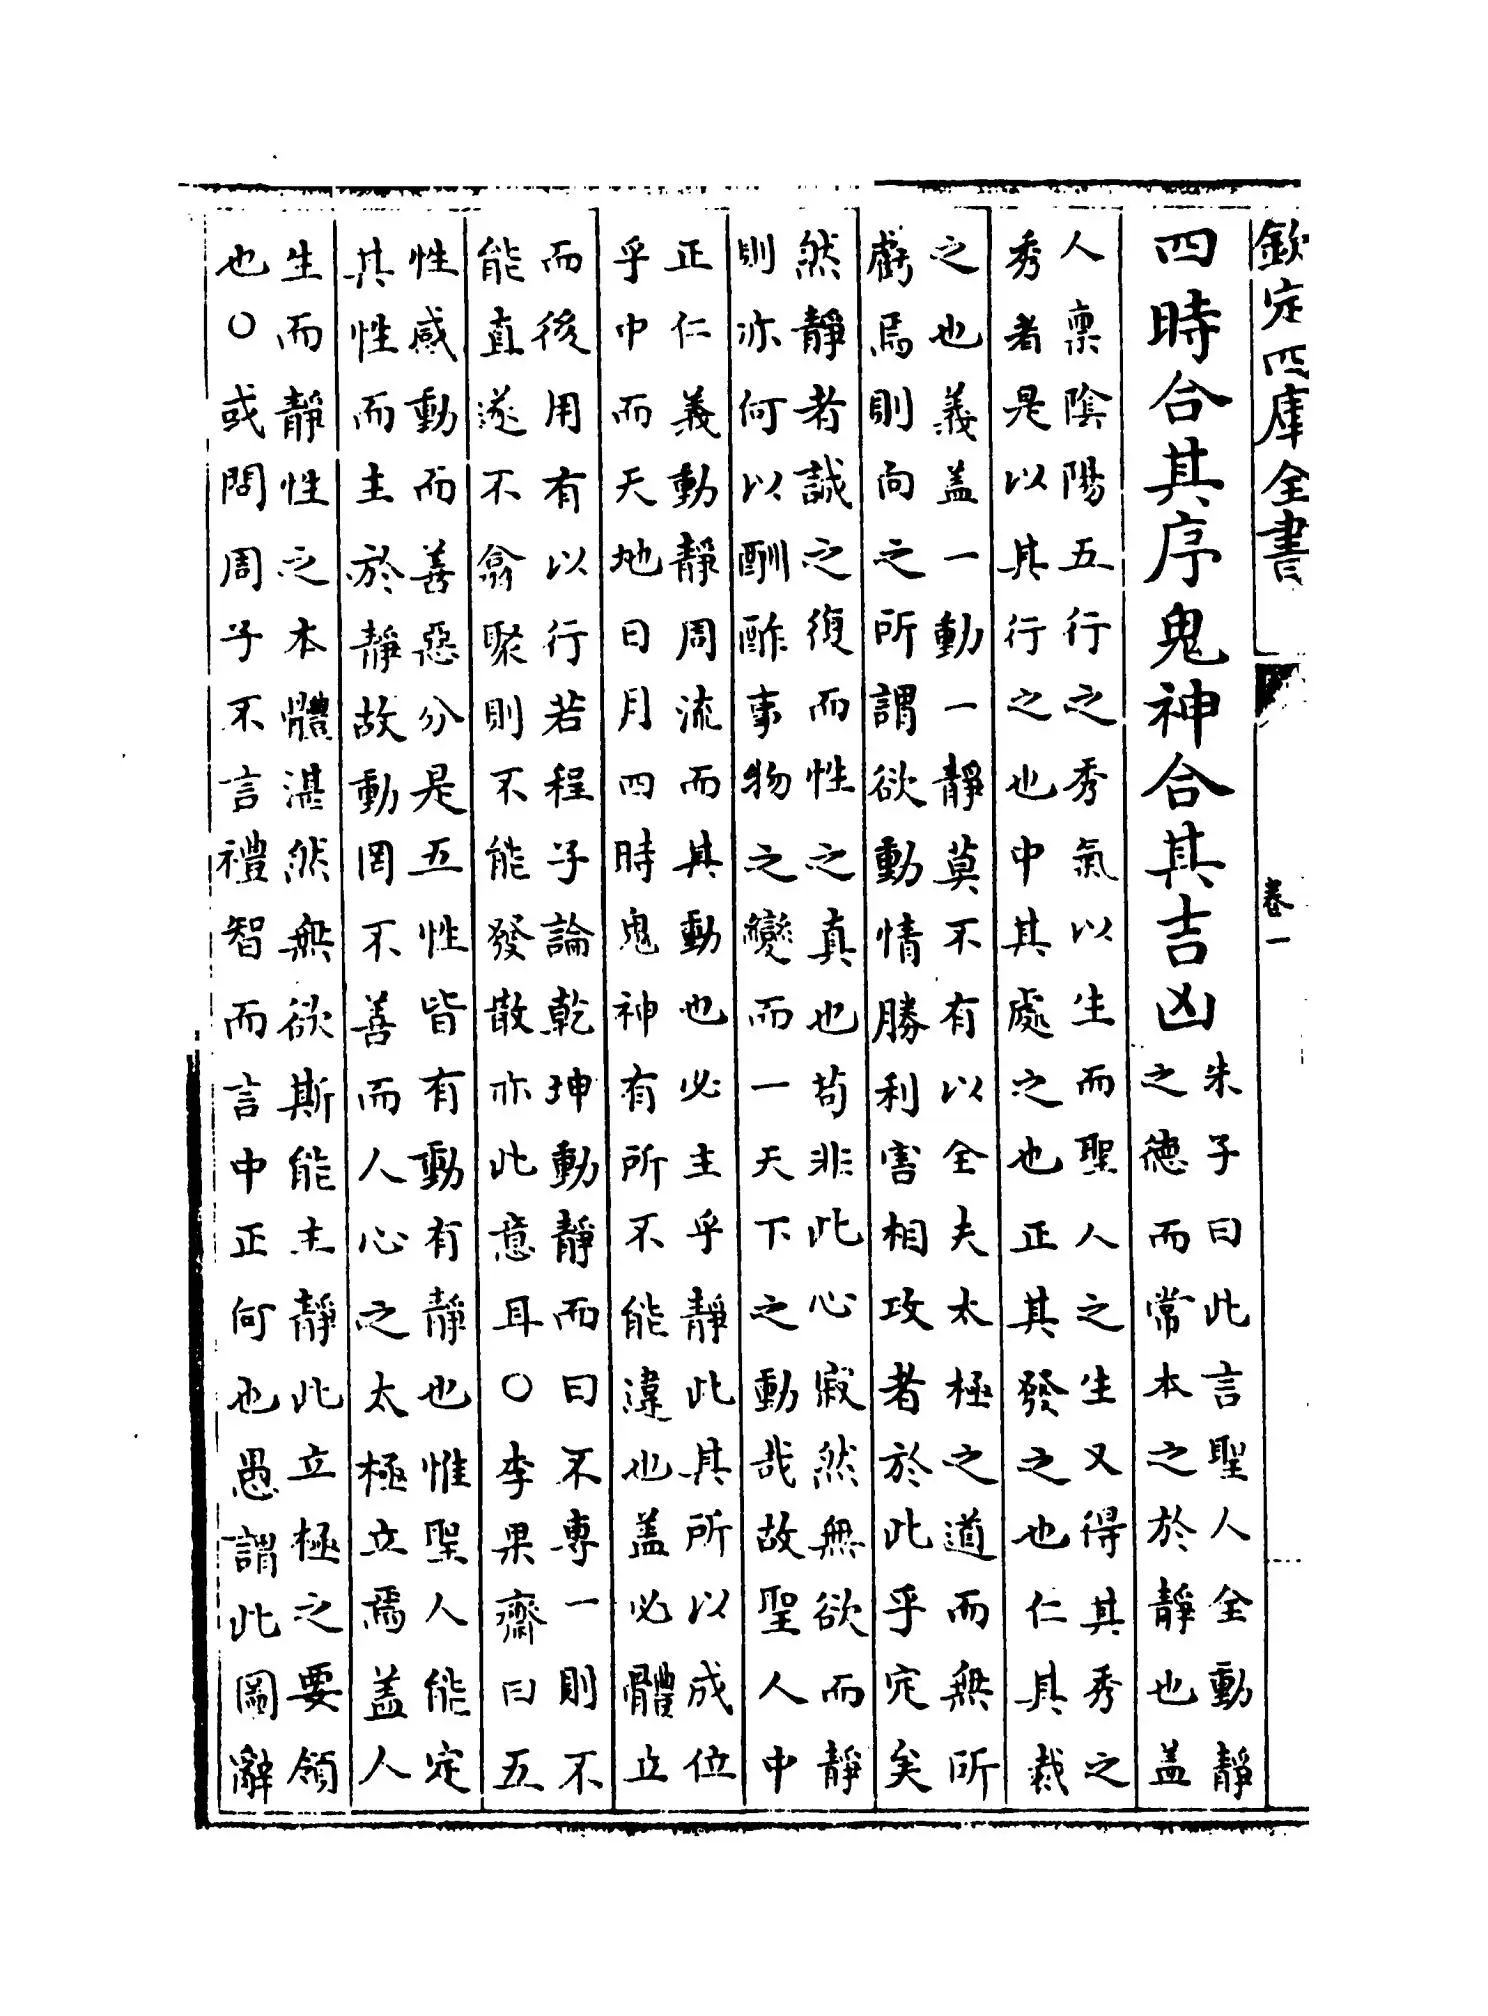 欽定四庫全書
卷一
四時合其序鬼神合其吉凶
朱子曰此言聖人全動靜
之德而常本之於靜也盖
人禀陰陽五行之秀氣以生而聖人之生又得其秀之
秀者是以其行之也中其處之也正其發之也仁其裁
之也義盖一動一靜莫不有以全夫太極之道而無所
虧焉則向之所謂欲動情勝利害相攻者於此乎定矣
然靜者誠之復而性之真也苟非此心寂然無欲而靜
則亦何以酬酢事物之變而一天下之動哉故聖人中
正仁義動靜周流而其動也必主乎靜此其所以成位
乎中而天地日月四時鬼神有所不能違也盖必體立
而後用有以行若程子論乾坤動靜而曰不專一則不
能直遂不翕聚則不能發散亦此意耳○李果齋曰五
性感動而善惡分是五性皆有動有靜也惟聖人能定
其性而主於靜故動罔不善而人心之太極立焉盖人
生而靜性之本體湛然無欲斯能主靜此立極之要領
也○或問周子不言禮智而言中正何也愚謂此圖辭